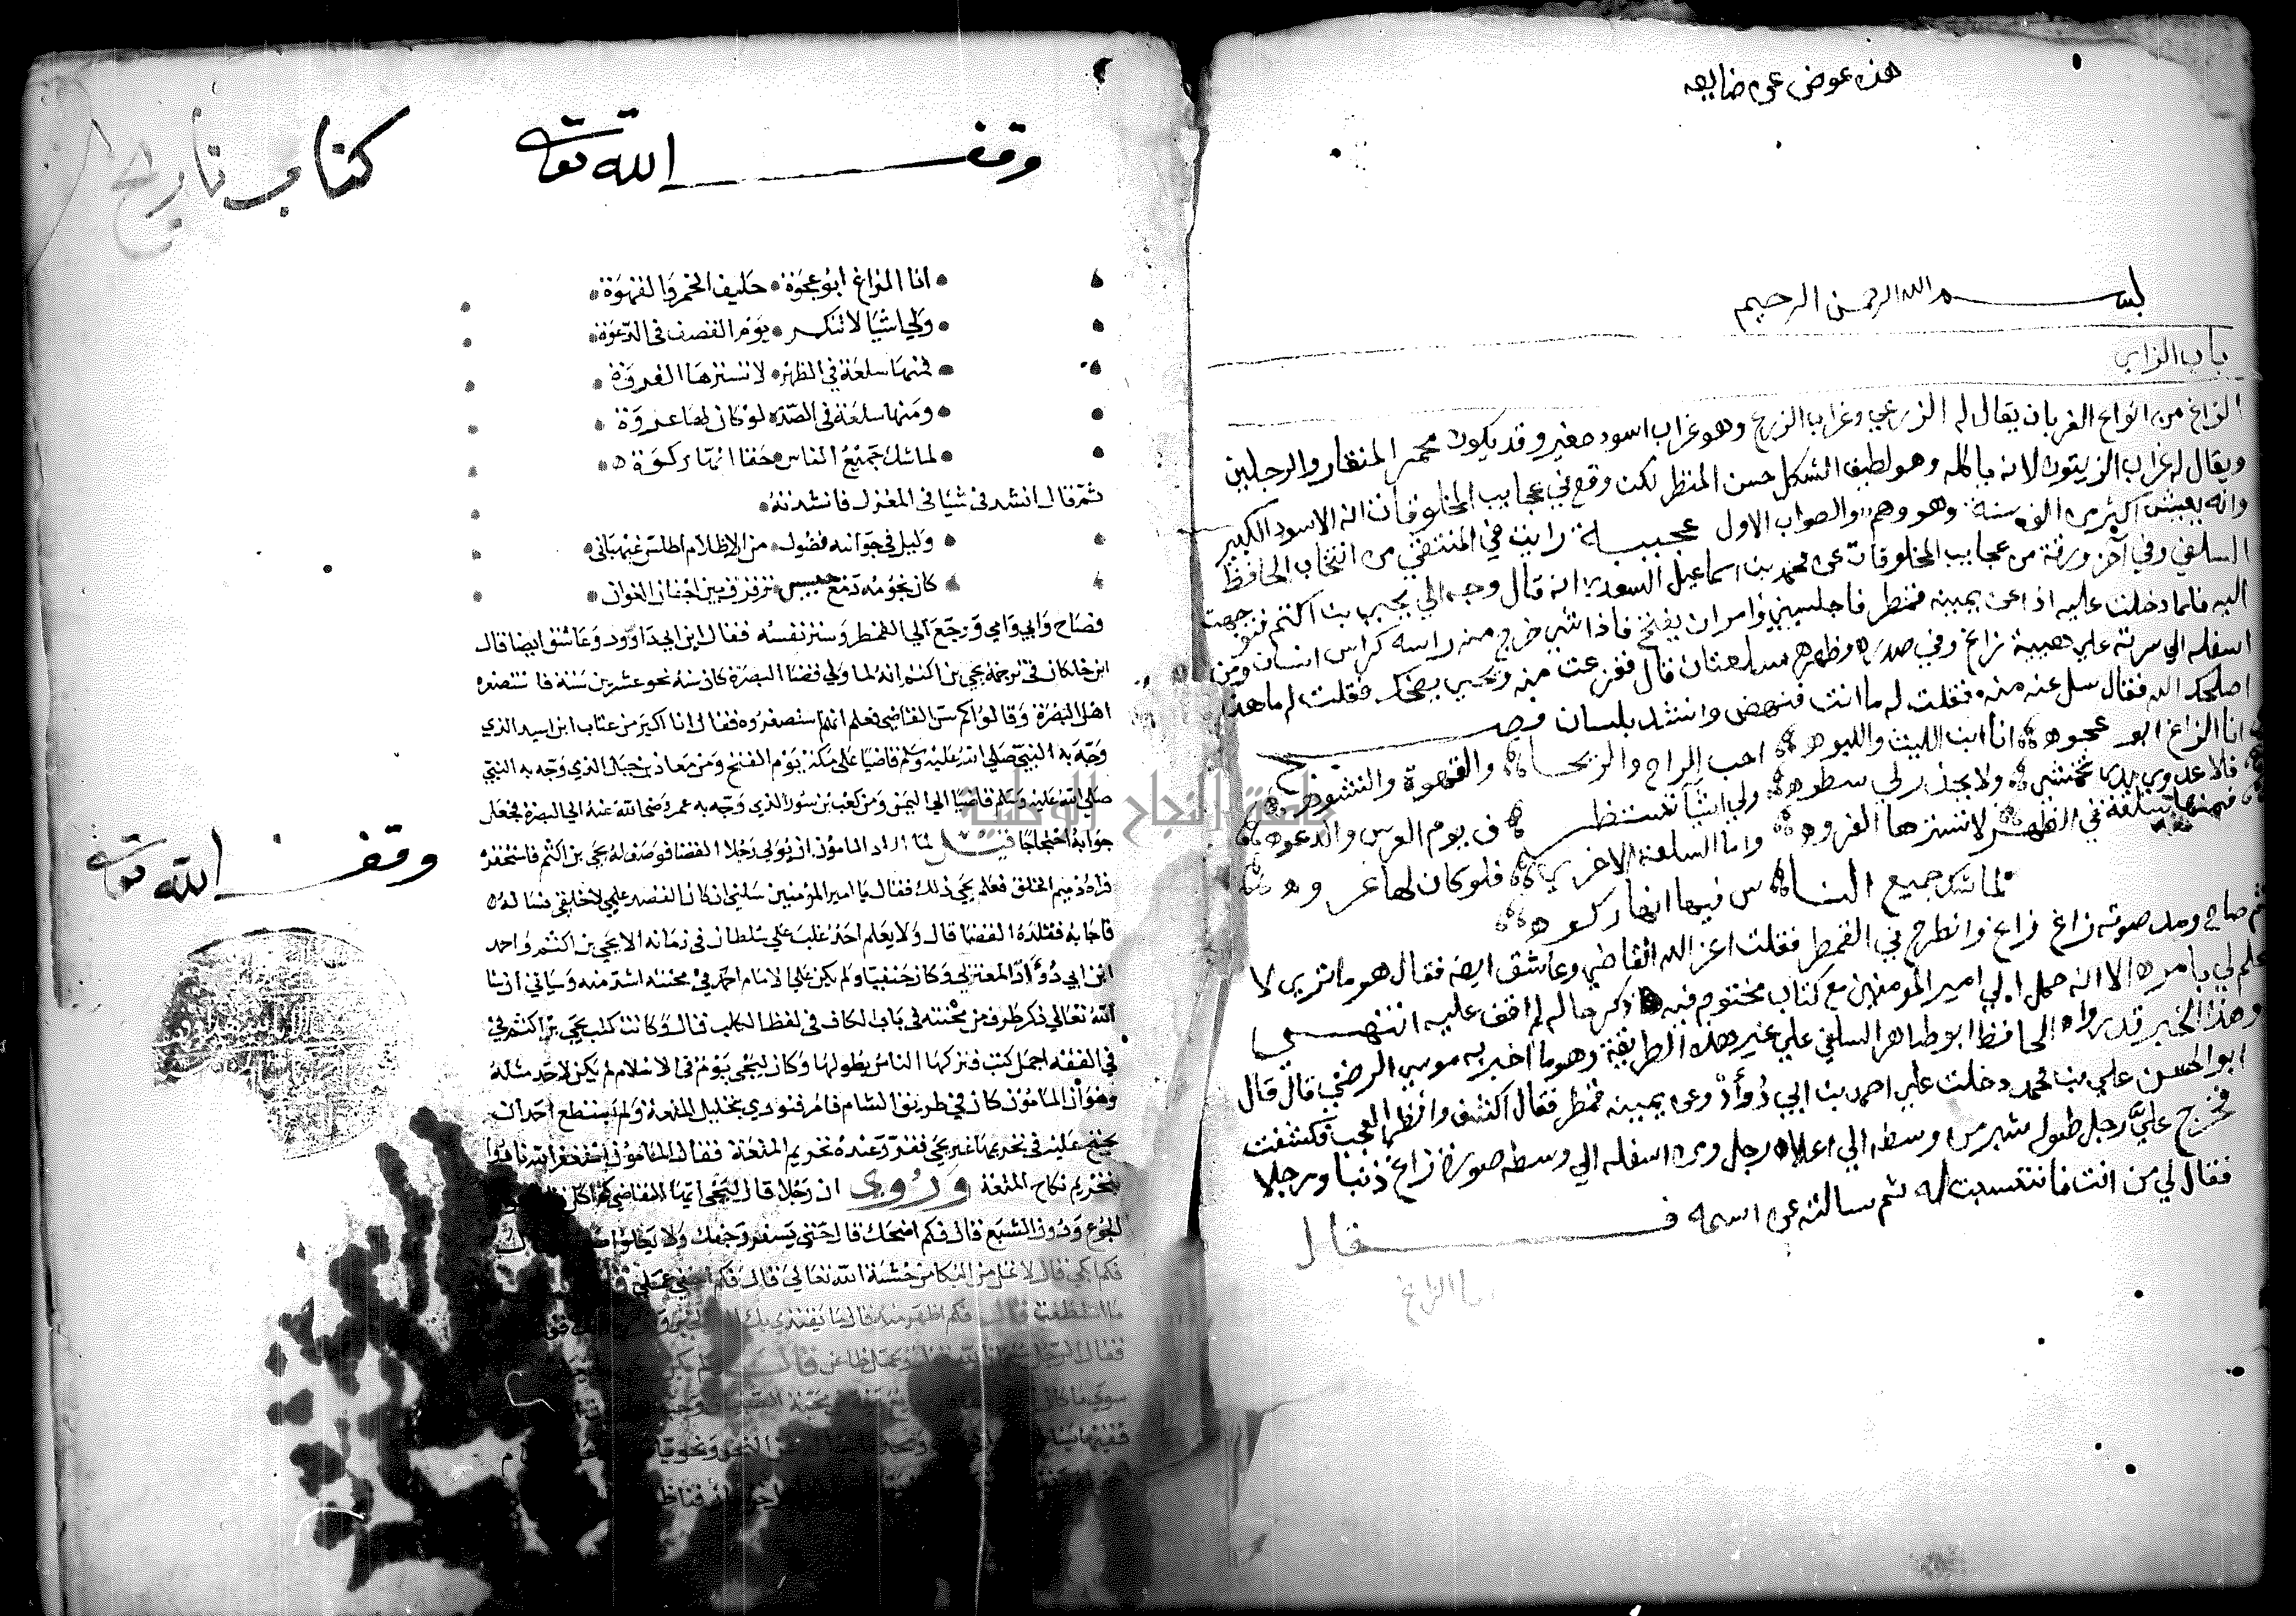 هذه عوض عن ضايعه
بسم الله الرحمن الرحيم
باب الزاي
الزاغ من انواع الغربان يقال له الزرعي وغراب الزرع وهو غراب اسود صغير وقد يكون محمر المنقار والرجلين
ويقال له غراب الزيتون لانه ياكله وهو لطيف الشكل حسن المنظر لكن وقع في عجايب المخلوقات انه الاسود الكبير
وانه يعيش اكثر من الف سنة وهو وهم والصواب الاول عجيبة رايت في المنتقى من انتخاب الحافظ
السلفي وفي آخر ورقة من عجايب المخلوقات عن محمد بن اسماعيل السعدي انه قال وجه الي يحيى بن اكثم فتوجهت
اليه فلما دخلت عليه اذا عن يمينه قمطر فاجلسني وامر ان يفتح فاذا شي خرج منه راسه كراس انسان ومن
اسفله الى سرته على هيية زاغ وفي صدره وظهره سلعتان قال ففزعت منه ويحيى يضحك فقلت له ما هذا
اصلحك الله فقال سل عنه منه فقلت له ما انت فنهض وانشد بلسان فصيح
انا الزاغ ابو عجوه انا ابن الليث واللبوه احب الراح والريحان والقهوة والنشوه
فلا عدوي يدي تخشى ولا يحذر لي سطوه ولي اشيا تستظرف يوم العرس والدعوه
فمنها سلعة في الظهر لا تسترها الفروه واما السلعة الاخرى فلو كان لها عروه
لما شك جميع الناس فيها انها ركوه
ثم صاح ومد صوته زاغ زاغ وانطرح في القمطر فقلت اعز الله القاضي وعاشق ايضا فقال هو ما ترى لا
علم لي بامره الا انه حمل الى امير المومنين مع كتاب مختوم فيه ذكر حاله لم اقف عليه انتهى
وهذا الخبر قد رواه الحافظ ابو طاهر السلفي على غير هذه الطريقة وهو ما اخبر به موسى الرضي قال قال
ابو الحسن علي بن محمد دخلت على احمد بن ابي دُوأد وعن يمينه قمطر فقال اكشف وانظر العجب فكشفت
فخرج عليَّ رجل طوله شبر من وسطه الى اعلاه رجل ومن اسفله الى وسطه صورة زاغ ذنبا ورجلا
فقال لي من انت فانتسبت له ثم سالته عن اسمه فقال
انا الزاغ
كتاب تاريخ
وقف الله تعالى
انا الزاغ ابو عجوة حليف الخمر والقهوة
ولي اشيا لا تنكر يوم القصف في الدعوة
فمنها سلعة في الظهر لا تسترها الفروة
ومنها سلعة في الصدر لو كان لها عروة
لما شك جميع الناس حقا انها ركوة
ثم قال انشدني شيا في الغزل فانشدته
وليل في جوانبه فضول من الاظلام اطلس غيهبانى
كان نجومه دمع حبيس ترقرق بين اجفان الغوان
فصاح وابي وامي ورجع الي القمطر وستر نفسه فقال ابن ابي داوود وعاشق ايضا قال
ابن خلكان في ترجمة يحيى بن اكثم انه لما ولي قضا البصرة كان سنه نحو عشرين سنة فاستصغره
اهل البصرة وقالوا كم سن القاضي فعلم انهم استصغروه فقال انا اكبر من عتاب ابن اسيد الذي
وجه به النبي صلى الله عليه وسلم قاضيا على مكة يوم الفتح ومن معاذ بن جبل الذي وجه به النبي
صلى الله عليه وسلم قاضيا الى اليمن ومن كعب بن سور الذي وجه به عمر رضى الله عنه الى البصرة فجعل
جوابه احتجاجا قيل لما اراد المامون ان يولي رجلا القضا فوصف له يحيى بن اكثم فاستحضره
فراه ذميم الخلق فعلم يحيى ذلك فقال يا امير المؤمنين سلني ان كان القصد علمي لا خلقي فساله
فاجابه فقلده القضا قال ولا يعلم احد غلب على سلطان في زمانه الا يحيى بن اكثم واحمد
ابن ابي دُوأد المعتزلي وكان حنفيا ولم يكن على الامام احمد في محنته اشد منه وسياتي ان شا
الله تعالى ذكر طرف من محنته في باب الكاف في لفظ الكلب قال وكانت كتب يحيى بن اكثم في
في الفقه اجمل كتب فتركها الناس لطولها وكان ليحيى يوم في الاسلام لم يكن لاحد مثله
وهو ان المامون كان في طريق الشام فامر فنودي بتحليل المتعة ولم يستطع احد ان
يحتج عليه في تحريمها غير يحيى فقرر عنده تحريم المتعة فقال المامون استغفر الله نادوا
بتحريم نكاح المتعة وروى ان رجلا قال ليحيى ايها القاضي كم اكل قال فوق
الجوع ودون الشبع قال فكم اضحك قال حتى يسفر وجهك ولا يعلو
فكم ابكي قال لا تمل من البكا من خشية الله تعالى قال فكم اخفي عملي
ما استطعت قال فكم اظهر منه قال ما يقتدي بك
فقال الرجل
سوى ما كان
وقف الله تعالى
جامعة النجاح الوطنية